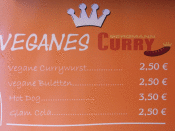 VEGANES CURRY
Vegane Currywurst 2,50 €
Vegane Buletten 2,50 €
Hot Dog 3,50 €
Glam Cola 2,50 €